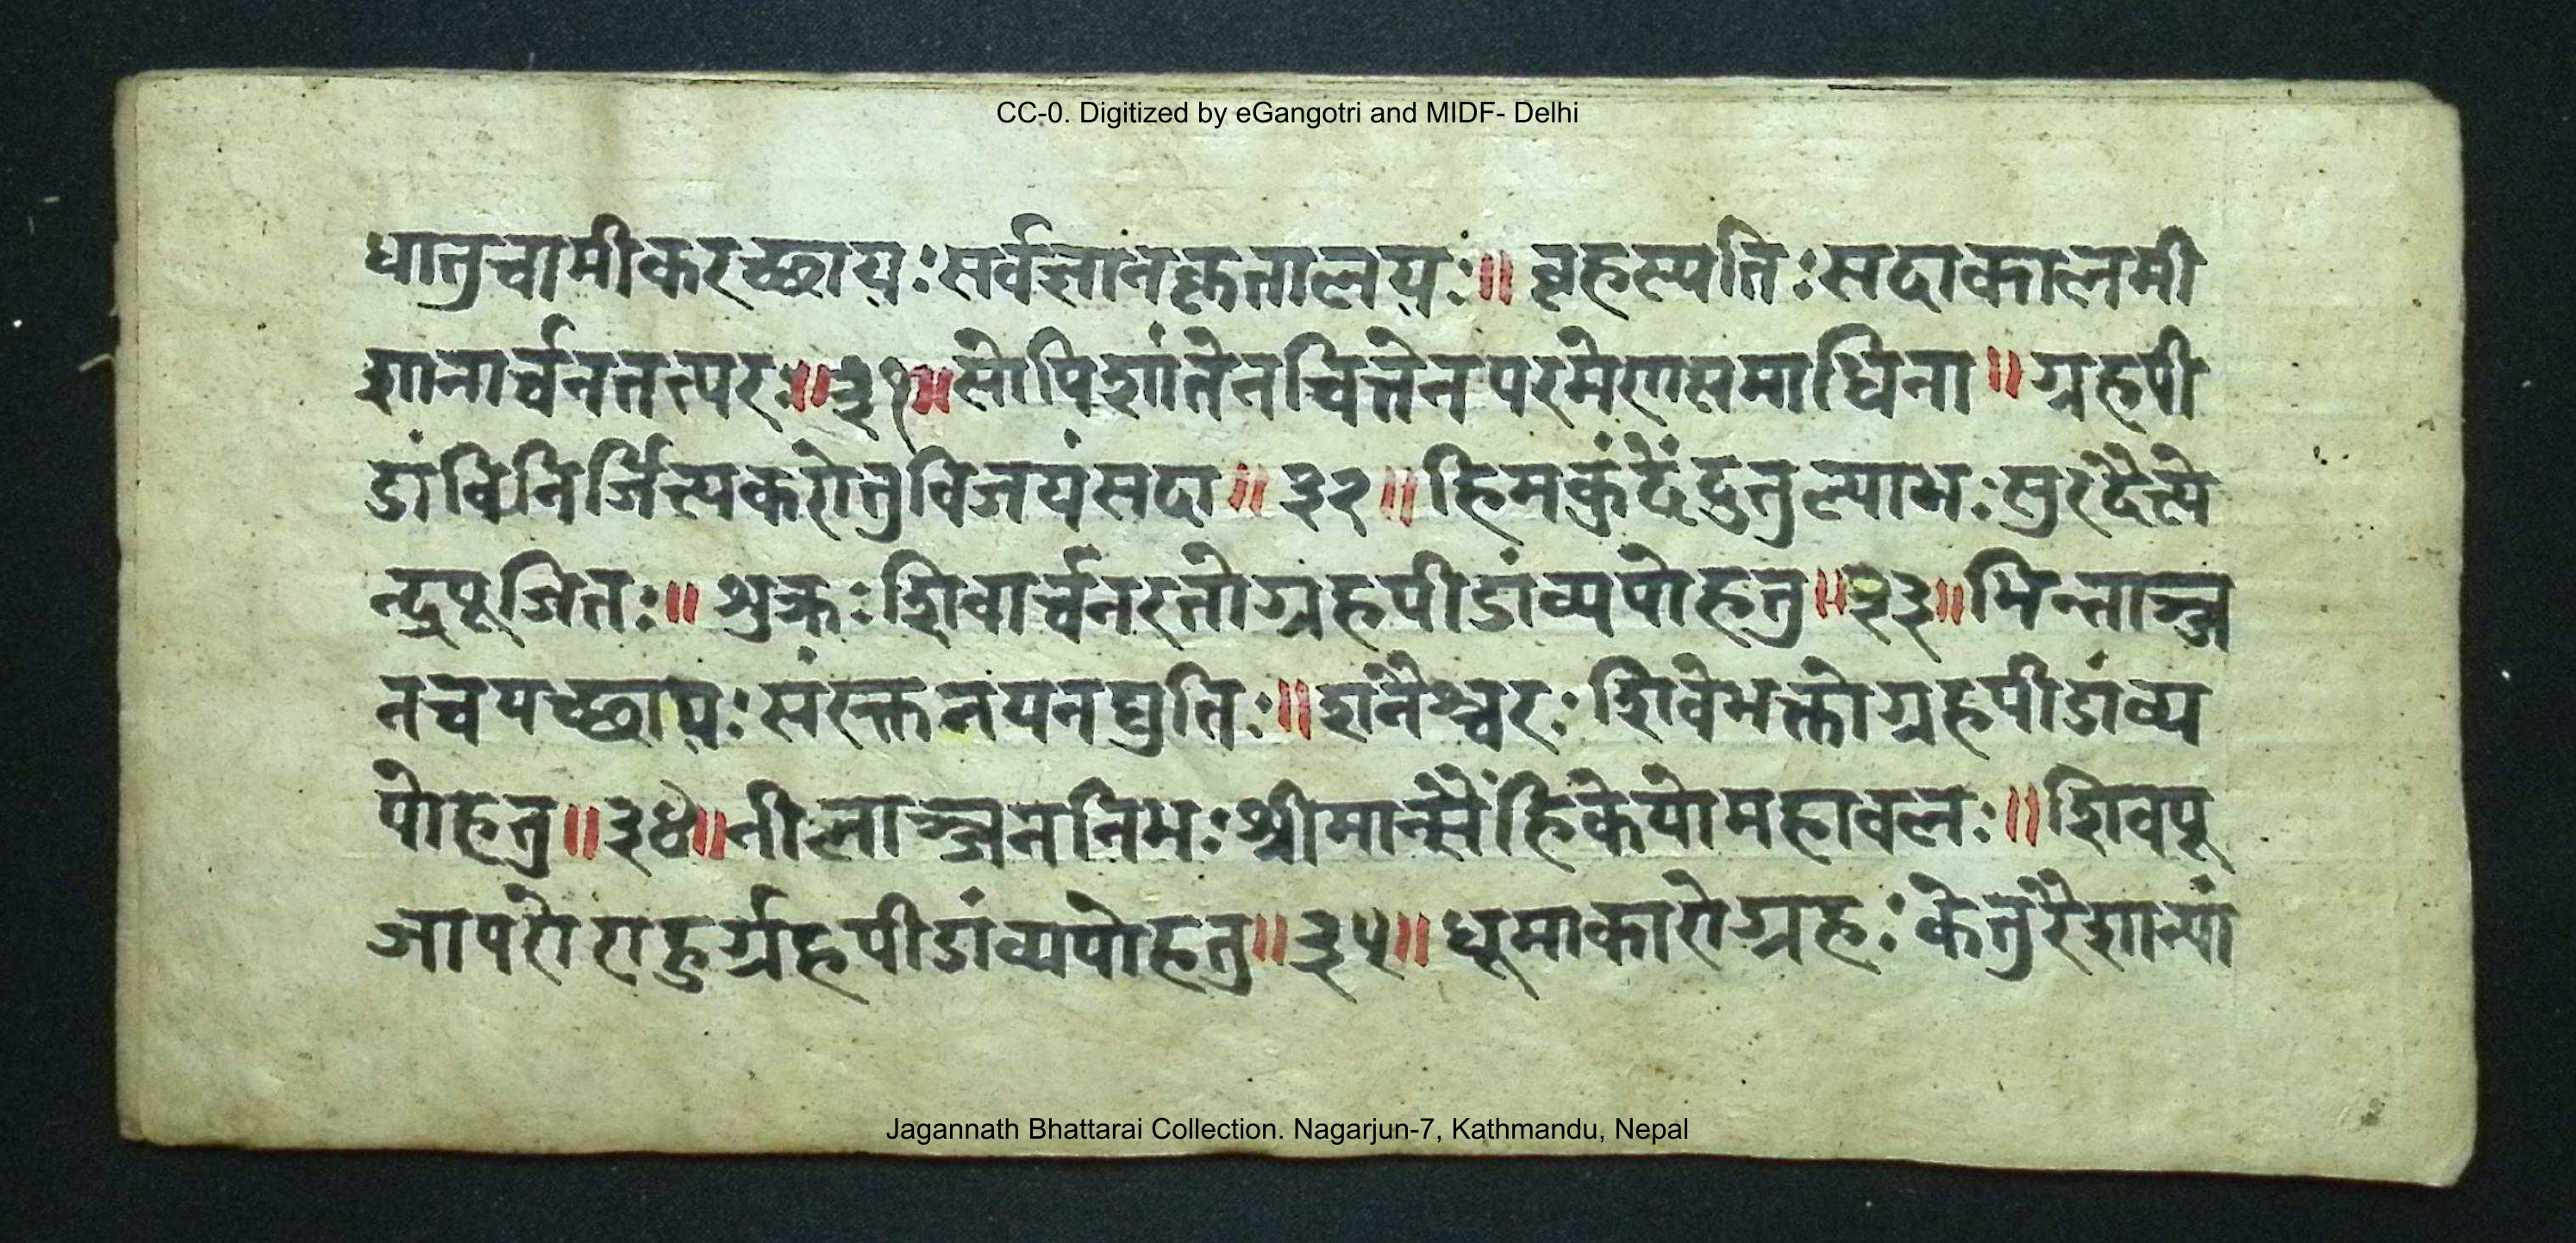 CC-0. Digitized by eGangotri and MIDF- Delhi
धातुचामीकरच्छायः सर्वज्ञानकृतालयः॥ बृहस्पतिः सदाकालमी
शानार्च्चनतत्परः॥३१॥ सोपिशांतेनचित्तेनपरमेणसमाधिना॥ ग्रहपी
डांविनिर्जित्यकरोतुविजयंसदा॥३२॥ हिमकुंदेंदुतुल्याभः सुरदैत्ये
न्द्रपूजितः॥ शुक्रः शिवार्च्चनरतोग्रहपीडांव्यपोहतु॥३३॥ भिन्नाञ्ज
नचयच्छायः संरक्तनयनद्युतिः॥ शनैश्चरः शिवेभक्तोग्रहपीडांव्य
पोहतु॥३४॥ नीलाञ्जननिभः श्रीमान्सैंहिकेयोमहावलः॥ शिवपू
जापरोराहुर्ग्रहपीडांव्यपोहतु॥३५॥ धूमाकारोग्रहः केतुरैशान्यां
Jagannath Bhattarai Collection. Nagarjun-7, Kathmandu, Nepal